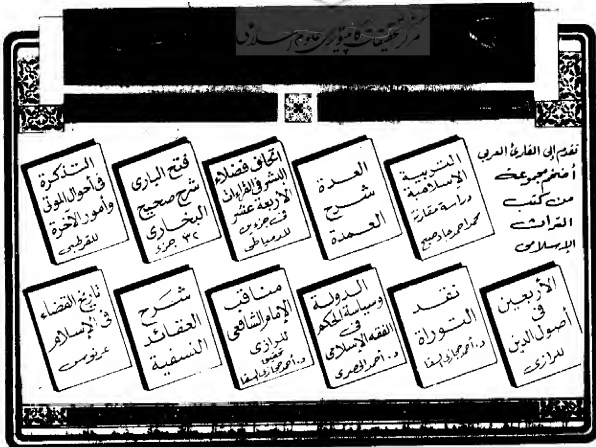 مرکز تحقیقات کامپیوتری علوم اسلامی
تقدم إلى القارئ العربي
أضخم مجموعة
من كتب
التراث
الإسلامى
التربية
الإسلامية
دراسة مقارنة
محمد أحمد جاد صبح
العدة
شرح
العمدة
إتحاف فضلاء
البشر فى القراءات
الأربعة عشر
فى جزءين
للدمياطى
فتح البارى
شرح صحيح
البخارى
٣٢ جزء
التذكرة
فى أحوال الموتى
وأمور الآخرة
للقرطبى
الأربعين
فى
أصول الدين
للرازى
نقد
التوراة
د. أحمد حجازى السقا
الدولة
وسياسة الحكم
فى
الفقه الإسلامى
د. أحمد الحصرى
مناقب
الإمام الشافعى
للرازى
تحقيق
د. أحمد حجازى السقا
شرح
العقائد
النسفية
تاريخ القضاء
فى الإسلام
عرنوس